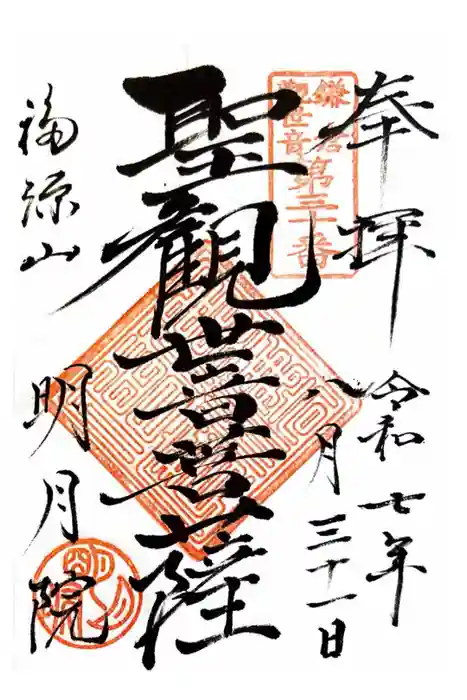 奉拝
令和七年
八月三十一日
鎌倉
觀世音第三十番
聖觀世音菩薩
福源山
明月院